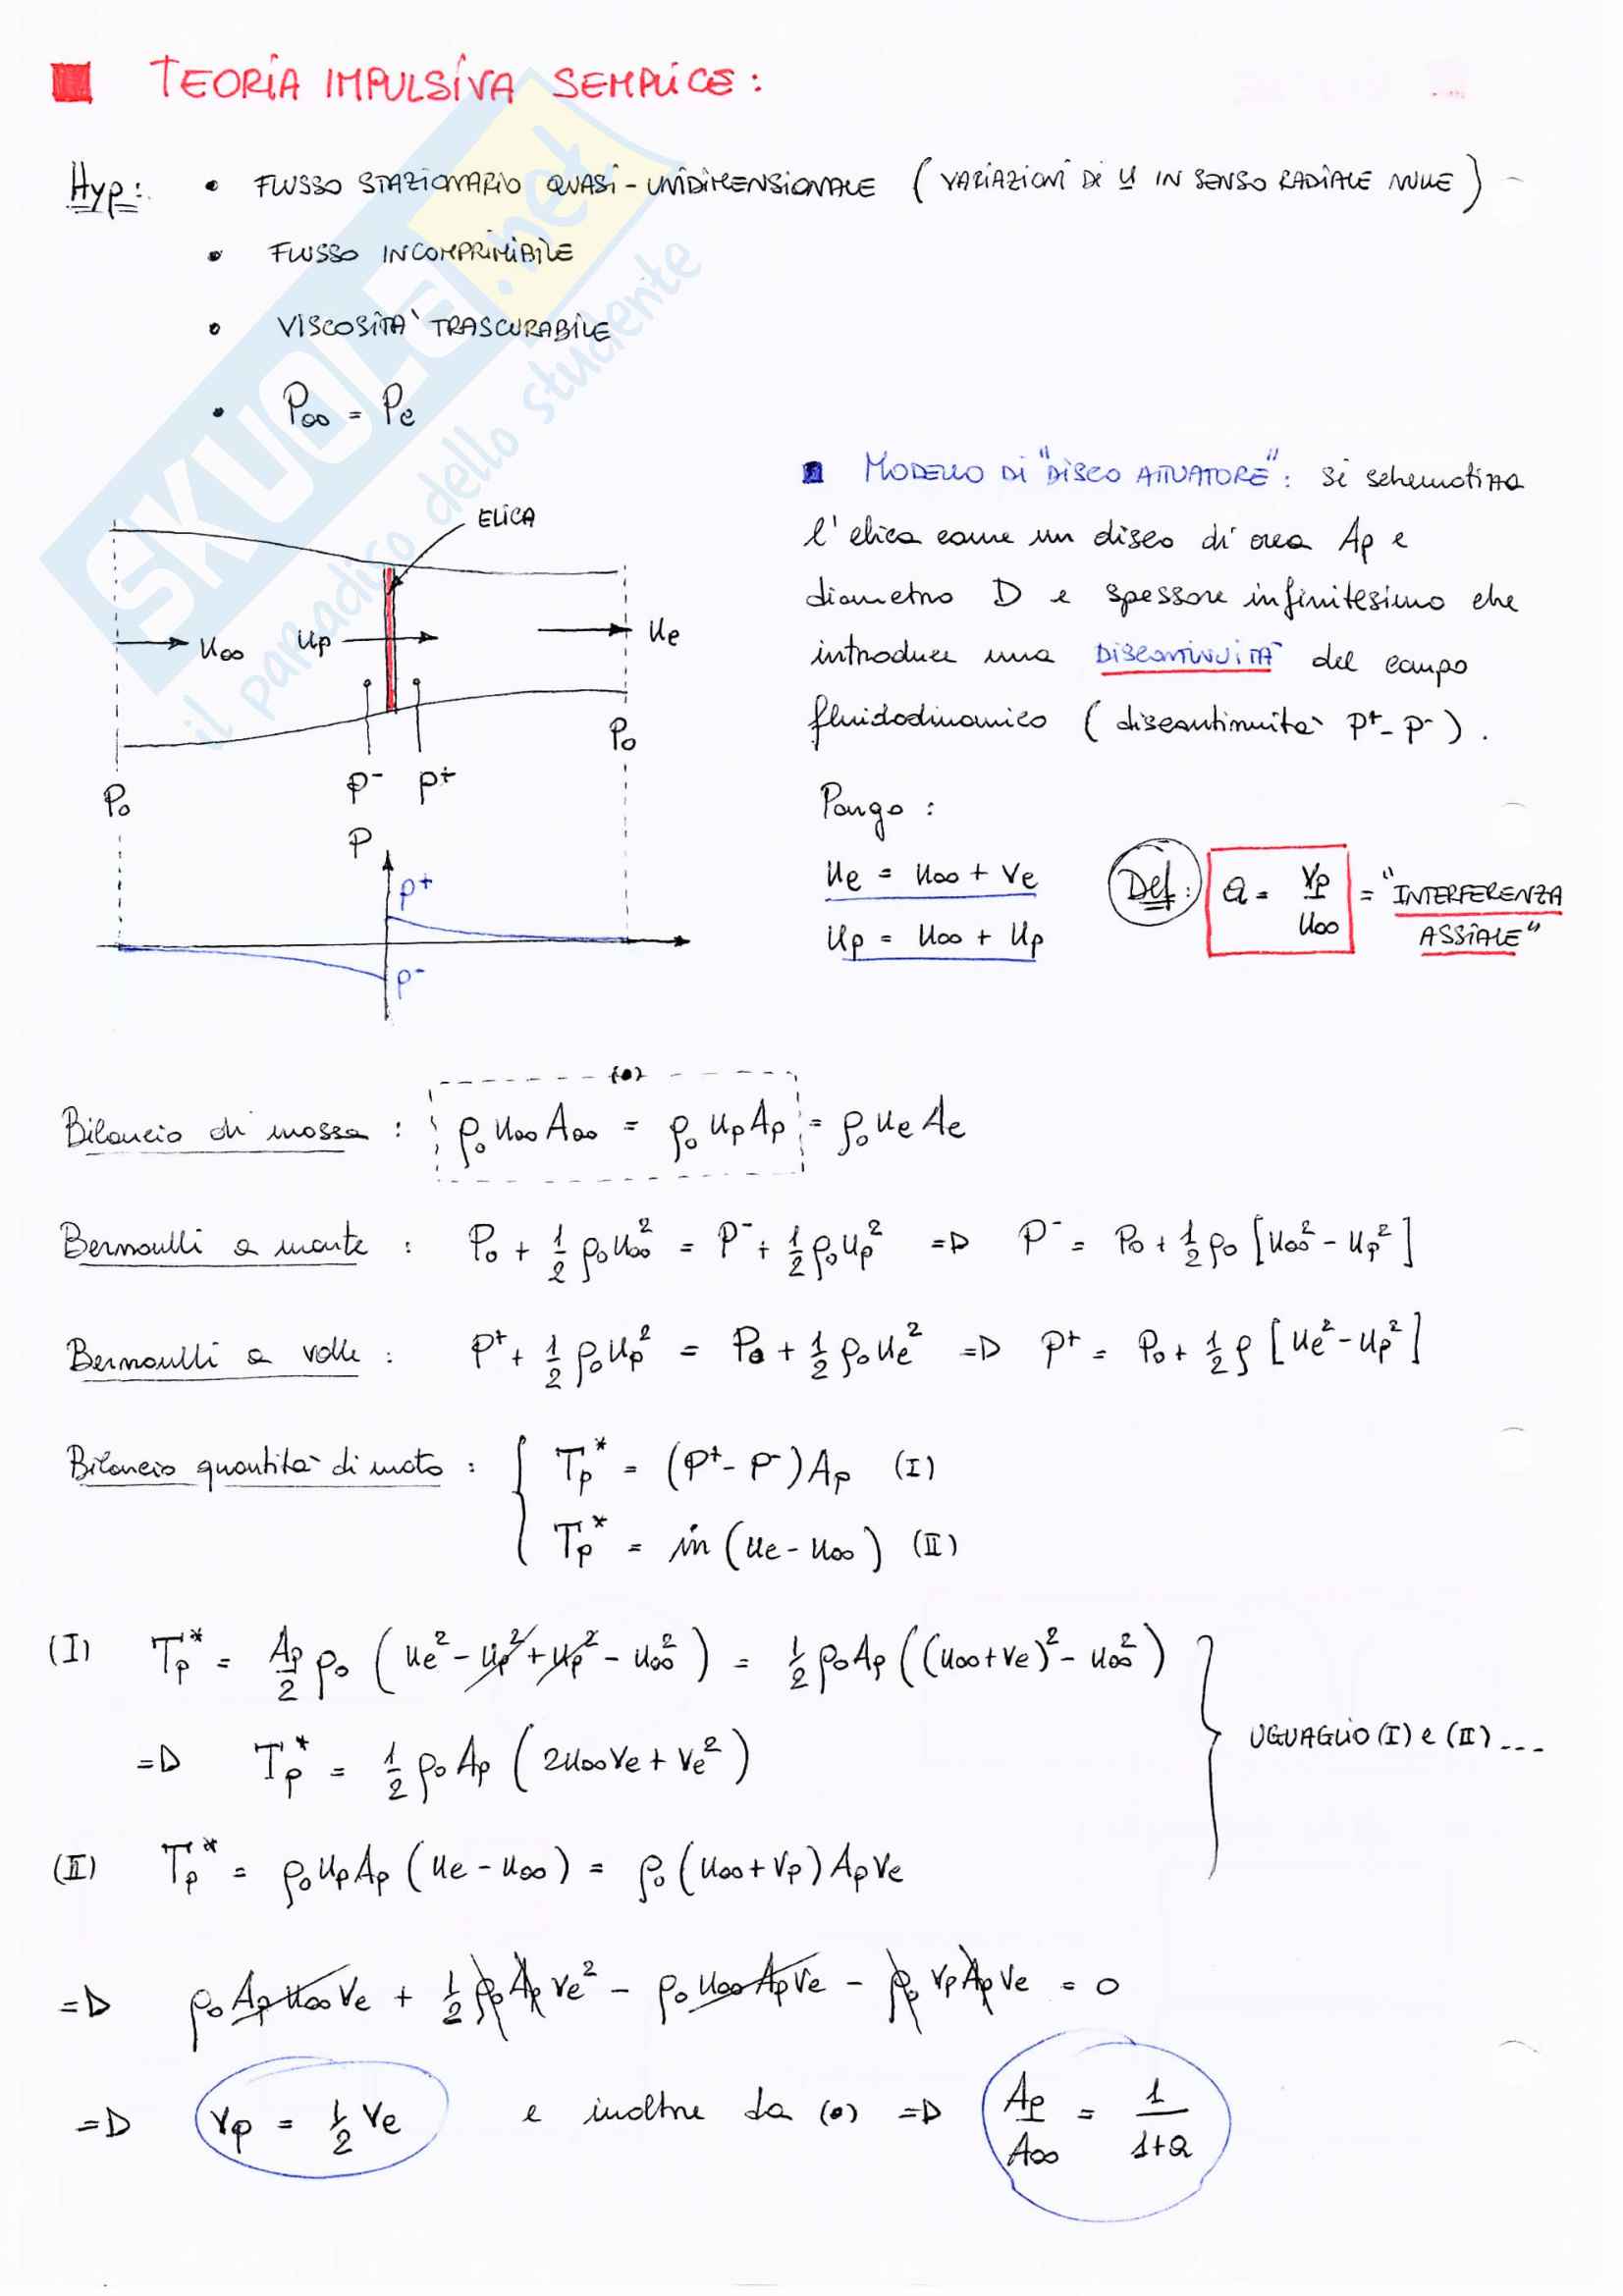 TEORIA IMPULSIVA SEMPLICE:
Hyp: • FLUSSO STAZIONARIO QUASI-UNIDIMENSIONALE (VARIAZIONI DI U IN SENSO RADIALE NULLE)
• FLUSSO INCOMPRIMIBILE
• VISCOSITA' TRASCURABILE
• P∞ = Pe
SKUOLA.net
il paradiso dello studente
ELICA
u∞ up ue
P₀ P⁻ P⁺ P₀
P
P⁺
P⁻
MODELLO DI "DISCO ATTUATORE": si schematizza
l'elica come un disco di area Ap e
diametro D e spessore infinitesimo che
introduce una DISCONTINUITÀ del campo
fluidodinamico (discontinuità P⁺- P⁻).
Pongo:
ue = u∞ + ve
up = u∞ + up
Def: a = vp/u∞ = "INTERFERENZA
ASSIALE"
(0)
Bilancio di massa: ρ₀ u∞ A∞ = ρ₀ up Ap = ρ₀ ue Ae
Bernoulli a monte: P₀ + 1/2 ρ₀ u∞² = P⁻ + 1/2 ρ₀ up² => P⁻ = P₀ + 1/2 ρ₀ [u∞² - up²]
Bernoulli a valle: P⁺ + 1/2 ρ₀ up² = P₀ + 1/2 ρ₀ ue² => P⁺ = P₀ + 1/2 ρ [ue² - up²]
Bilancio quantità di moto: { Tp* = (P⁺ - P⁻) Ap (I)
Tp* = ṁ (ue - u∞) (II)
(I) Tp* = Ap/2 ρ₀ (ue² - up² + up² - u∞²) = 1/2 ρ₀ Ap ((u∞ + ve)² - u∞²)
=> Tp* = 1/2 ρ₀ Ap (2u∞ve + ve²)
UGUAGLIO (I) e (II)...
(II) Tp* = ρ₀ up Ap (ue - u∞) = ρ₀ (u∞ + vp) Ap ve
=> ρ₀ Ap u∞ ve + 1/2 ρ₀ Ap ve² - ρ₀ u∞ Ap ve - ρ₀ vp Ap ve = 0
=> vp = 1/2 ve e inoltre da (0) => Ap/A∞ = 1/(1+a)